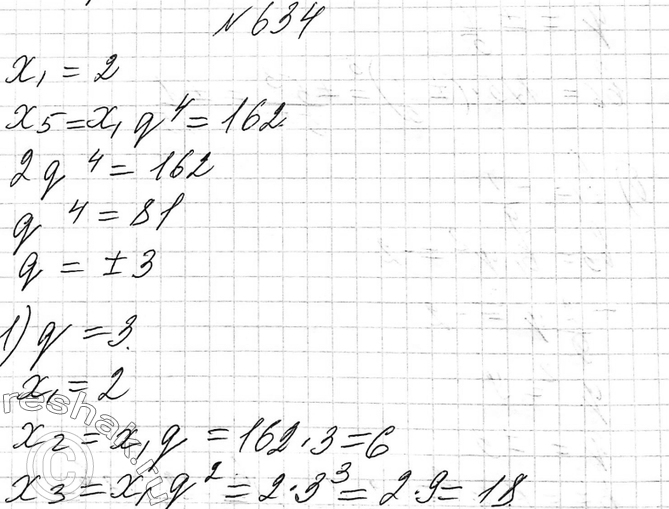 №634
x₁ = 2
x₅ = x₁ q⁴ = 162
2q⁴ = 162
q⁴ = 81
q = ±3
1) q = 3
x₁ = 2
x₂ = x₁q = 162·3 = 6
x₃ = x₁q² = 2·3³ = 2·9 = 18
reshak.ru
©